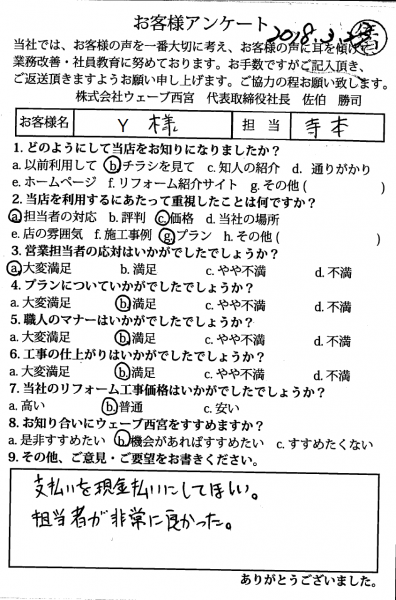 お客様アンケート 2018.3.
当社では、お客様の声を一番大切に考え、お客様の声に耳を傾けて
業務改善・社員教育に努めております。お手数ですがご記入頂き、
ご返送頂きますようお願い申し上げます。ご協力の程お願い致します。
株式会社ウェーブ西宮 代表取締役社長 佐伯 勝司
お客様名 Y 様 担当 寺本
1. どのようにして当店をお知りになりましたか？
a. 以前利用して b.チラシを見て c. 知人の紹介 d. 通りがかり
e. ホームページ f. リフォーム紹介サイト g. その他( )
2. 当店を利用するにあたって重視したことは何ですか？
a.担当者の対応 b. 評判 c.価格 d. 当社の場所
e. 店の雰囲気 f. 施工事例 g.プラン h. その他( )
3. 営業担当者の応対はいかがでしたでしょうか？
a.大変満足 b. 満足 c. やや不満 d. 不満
4. プランについていかがでしたでしょうか？
a. 大変満足 b.満足 c. やや不満 d. 不満
5. 職人のマナーはいかがでしたでしょうか？
a. 大変満足 b.満足 c. やや不満 d. 不満
6. 工事の仕上がりはいかがでしたでしょうか？
a. 大変満足 b.満足 c. やや不満 d. 不満
7. 当社のリフォーム工事価格はいかがでしたでしょうか？
a. 高い b.普通 c. 安い
8. お知り合いにウェーブ西宮をすすめますか？
a. 是非すすめたい b.機会があればすすめたい c. すすめたくない
9. その他、ご意見・ご要望をお書きください。
支払いを現金払いにしてほしい。
担当者が非常に良かった。
ありがとうございました。